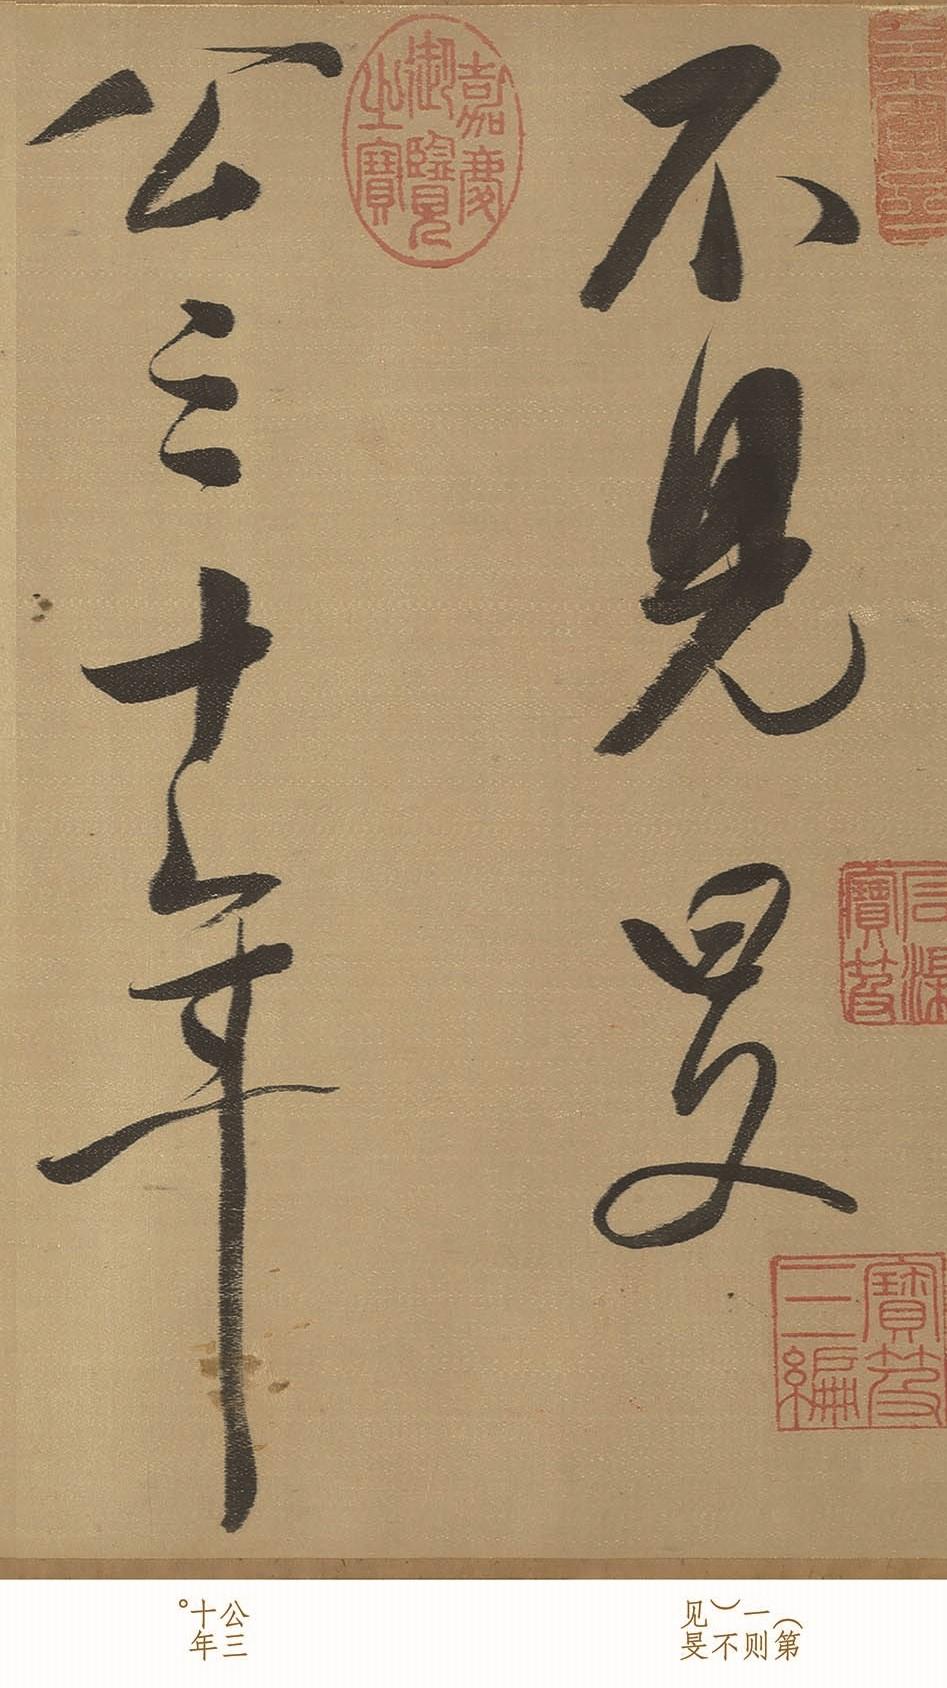 不見旻
公三十年
嘉慶御覽之寶
石渠寶笈
寶笈三編
（第
一则
）不
见旻
公三
十年
。